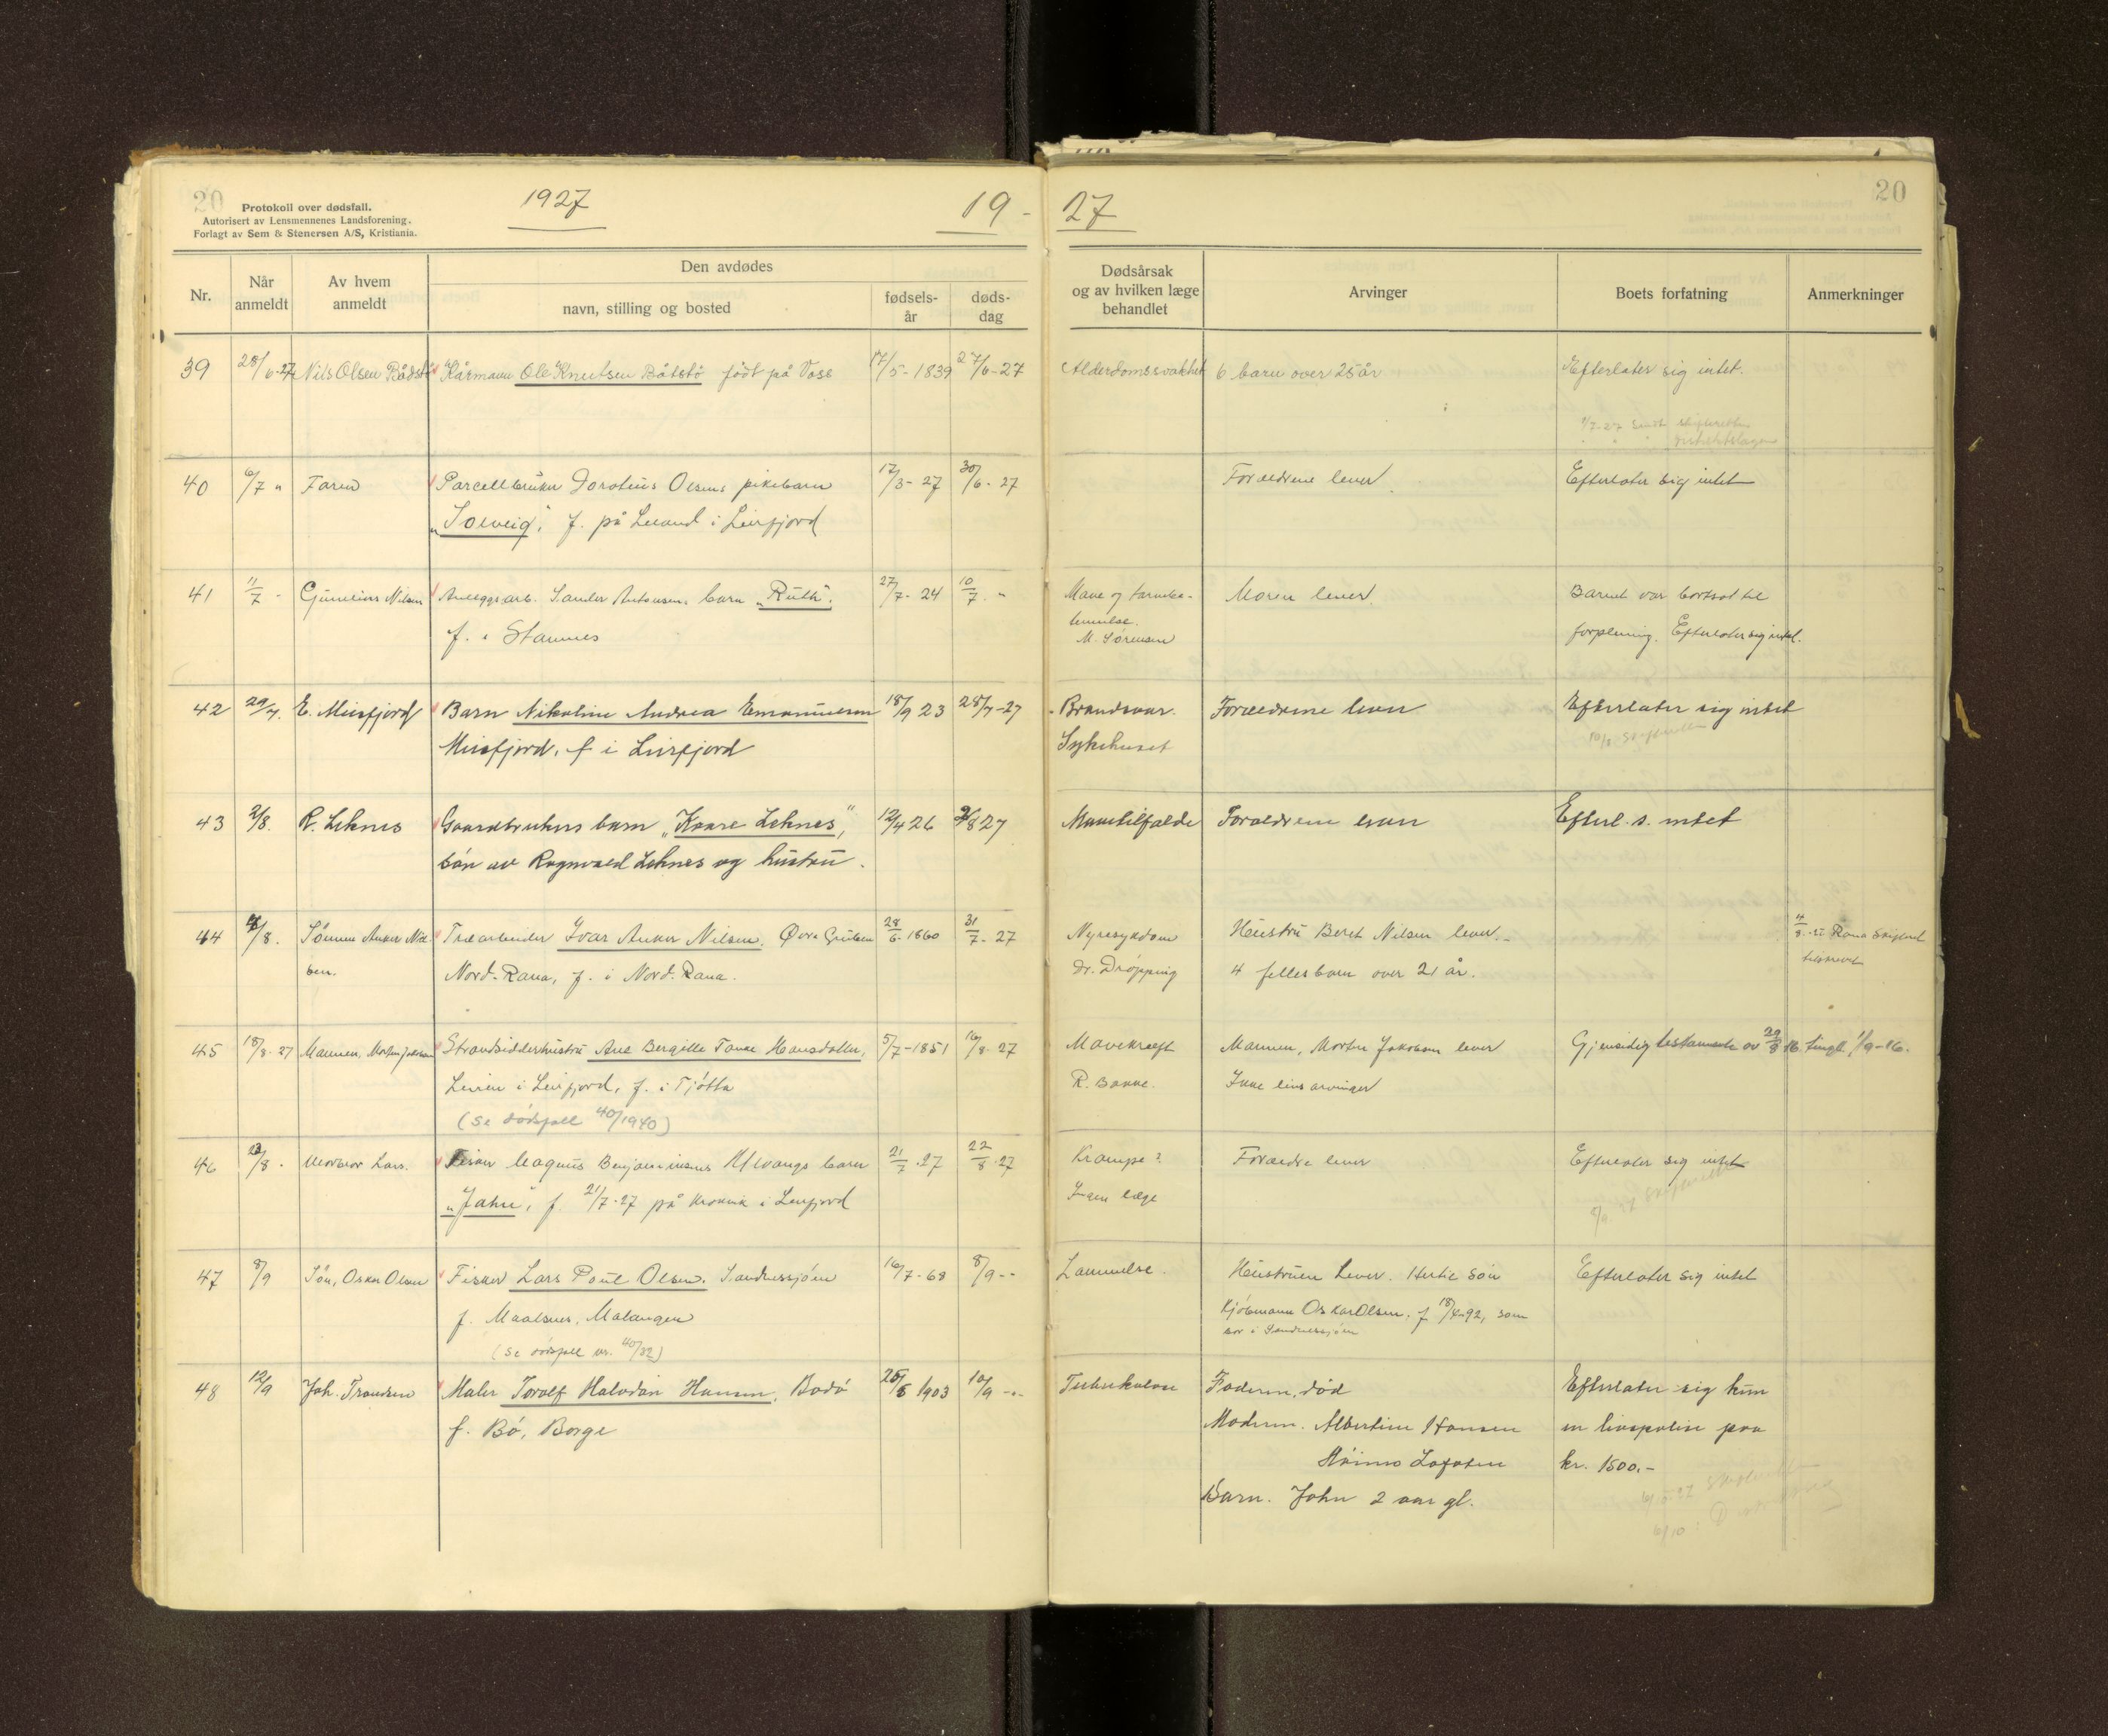 20
Protokoll over dødsfall.
Autorisert av Lensmennenes Landsforening.
Forlagt av Sem & Stenersen A/S, Kristiania.
1927
19-
27
20
Nr.
Når anmeldt
Av hvem anmeldt
Den avdødes
navn, stilling og bosted
fødsels-år
døds-dag
Dødsårsak og av hvilken læge behandlet
Arvinger
Boets forfatning
Anmerkninger
39 28/6-27 Nils Olsen Båtstø Kårmann Ole Knutsen Båtstø født på Vase 17/5-1839 27/6-27 Alderdomssvakhet 6 barn over 25 år Efterlater sig intet.
1/7-27 Sendt skifteretten
40 6/7 " Faren Parcellbruker Doroteus Olsens pikebarn 17/3-27 30/6-27 Forældrene lever Efterlater sig intet
"Solveig", f. på Leland i Leirfjord
41 11/7 - Nilsen Anleggsarb. Sander Antonsens barn "Ruth". 27/7-24 10/7 -"- Mave og tarmbe- Moren lever. Barnet var bortsat til
f. i Stamnes tennelse. forpleining. Efterlater sig intet.
M. Sørensen
42 29/7. E. Meisfjord Barn Nikoline Andrea Emanuelsen 18/9 23 28/7-27 Brandsaar. Forældrene lever Efterlater sig intet
Meisfjord, f i Leirfjord Sykehuset 10/8 Skifteretten
43 2/8. R. Leknes Gaardbrukers barn "Kaare Leknes", 12/4 26 8 27 Mavetilfælde Forældrene lever Efterl. s. intet
søn av Ragnvald Leknes og hustru.
44 4/8. Sønnen Anker Niel- Træarbeider Ivar Anker Nilsen. Øvre Gruben 28/6-1860 31/7-27 Nyresykdom Heustru Beret Nilsen lever.- 4/8-27 Rana Skifteret
sen. Nord-Rana, f. i Nord-Rana. dr. Drøpping 4 felles barn over 21 år. tilskrevet
45 18/8-27 Mannen, Morten Jakobsen Strandsidderhustru Ane Bergitte Tonne Hansdatter, 5/7-1851 16/8-27 Mavekræft Mannen, Morten Jakobsen lever Gjensidig testamente av 29/8 16 tingl. 1/9-16.
Leiren i Leirfjord, f. i Tjøtta R. Bakke. Ikke livsarvinger
(Se dødsfall 40/1940)
46 /8. Morbror Lars. Fisker Magnus Benjaminsens Ulvangs barn 21/7-27 22/8-27 Krampe? Forældre lever Efterlater sig intet
"Jahn", f. 21/7-27 på Krokvik i Leirfjord Ingen læge Skifteretten
47 8/9 Søn, Oskar Olsen Fisker Lars Poul Olsen. Sandnessjøen 16/7-68 8/9-- Lammelse. Heustruen Lever. Hertil søn Efterlater sig intet
f. Maalsnes, Malangen Kjøbmann Oskar Olsen. f 18/4-92, som
(Se dødsfall nr. 40/32) bor i Sandnessjøen
48 12/9 Joh. Trondsen Maler Toralf Halvdan Hansen, Bodø 1903 10/9 -"- Tuberkulose Faderen, død Efterlater sig kun
f. Bø, Borge Moderen. Albertine Hansen en livspolise paa
Lofoten kr. 1500.-
Barn. John 2 aar gl.
6/10-27 Skifteretten
6/10